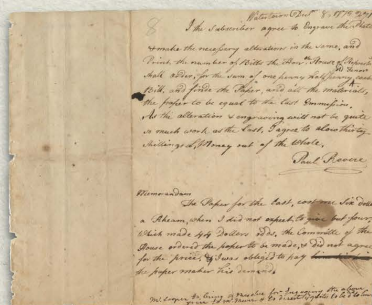 Watertown Decr 8. 1775
I the Subscriber agree to Engrave the Plate
& make the necessary alterations in the same, and
Print the number of Bills the Honle House of
shall order, for the sum of one penny half penny each
Bill, and finde the Paper, and all the materials,
the paper to be equal to the last Emmission.
As the alteration & engraving will not be quite
so much work as the Last, I agree to allow thirty
shillings L Money out of the whole.
Paul Revere
Memorandum
The Paper for the Last, cost me Six dolls
a Rheam, when I did not expect to give but four,
which made 44 Dollars odds, the Committe of the
House ordered the paper to be made, & did not agree
for the price; & I was obliged to pay
the paper maker his demand.